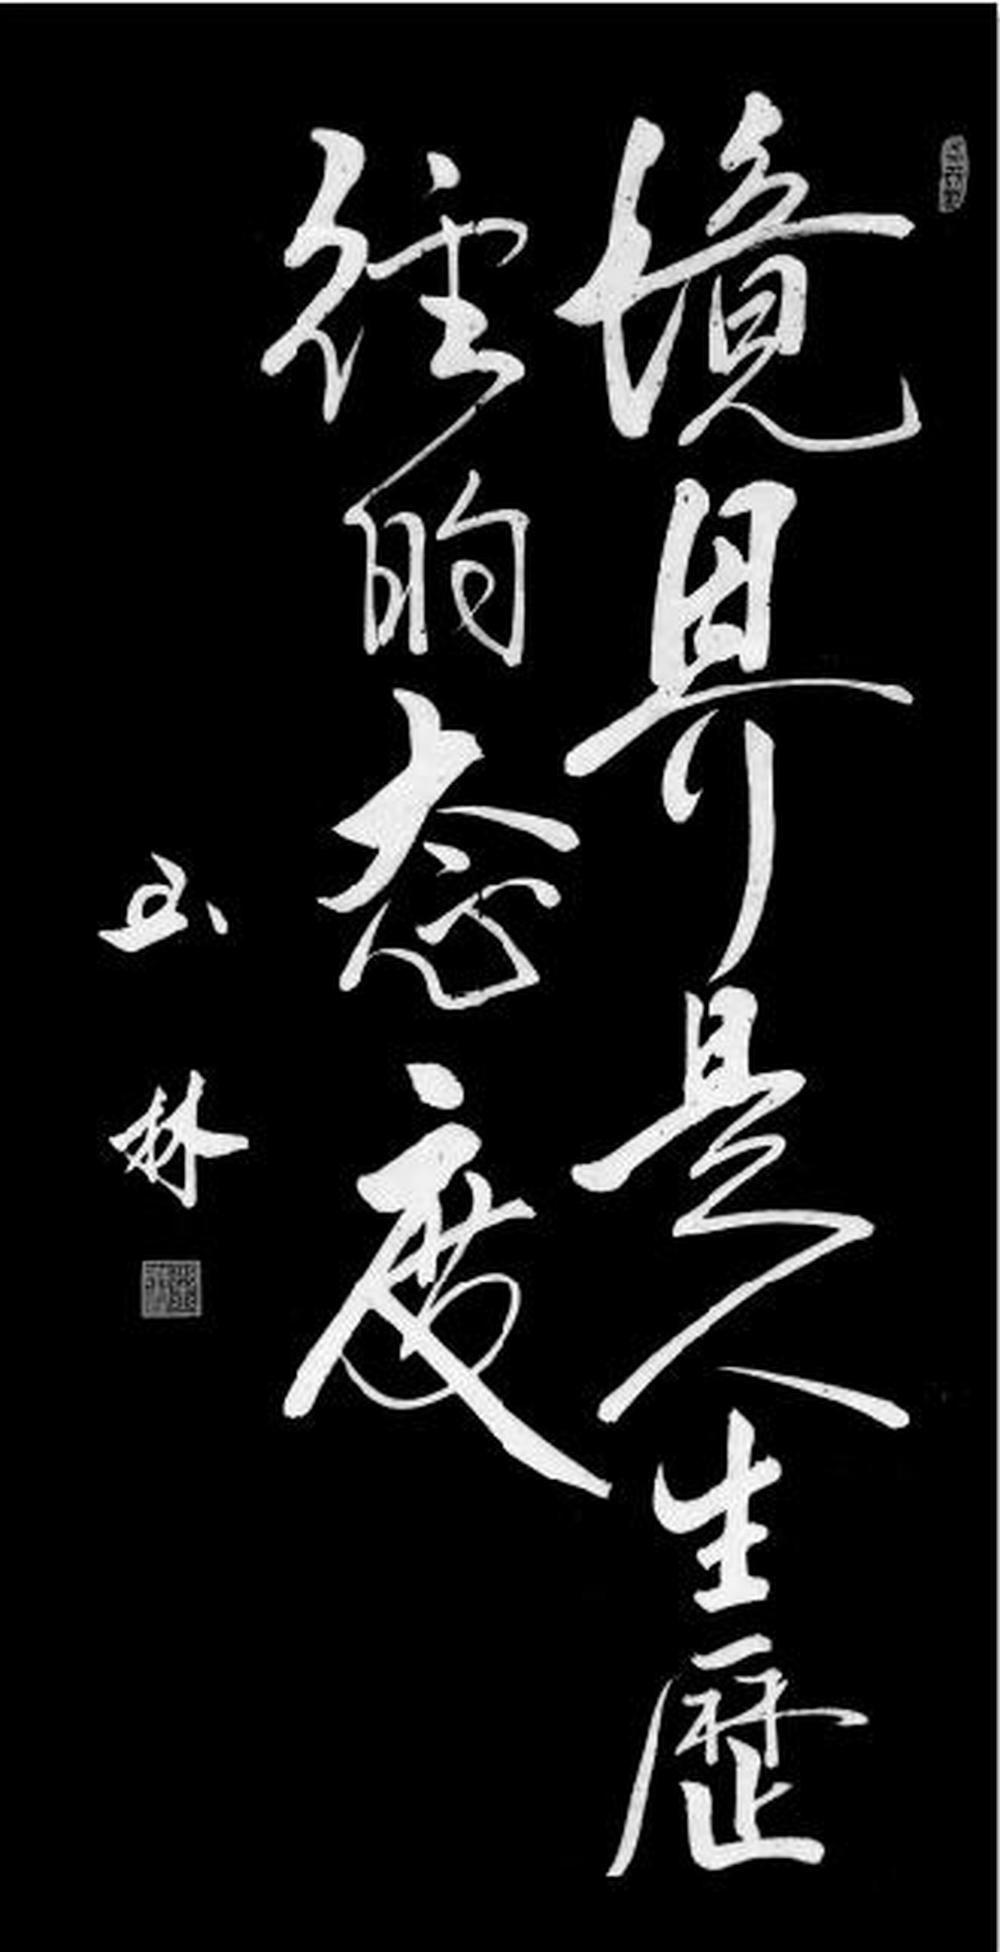 境界是人生歷
经的态度
玉林